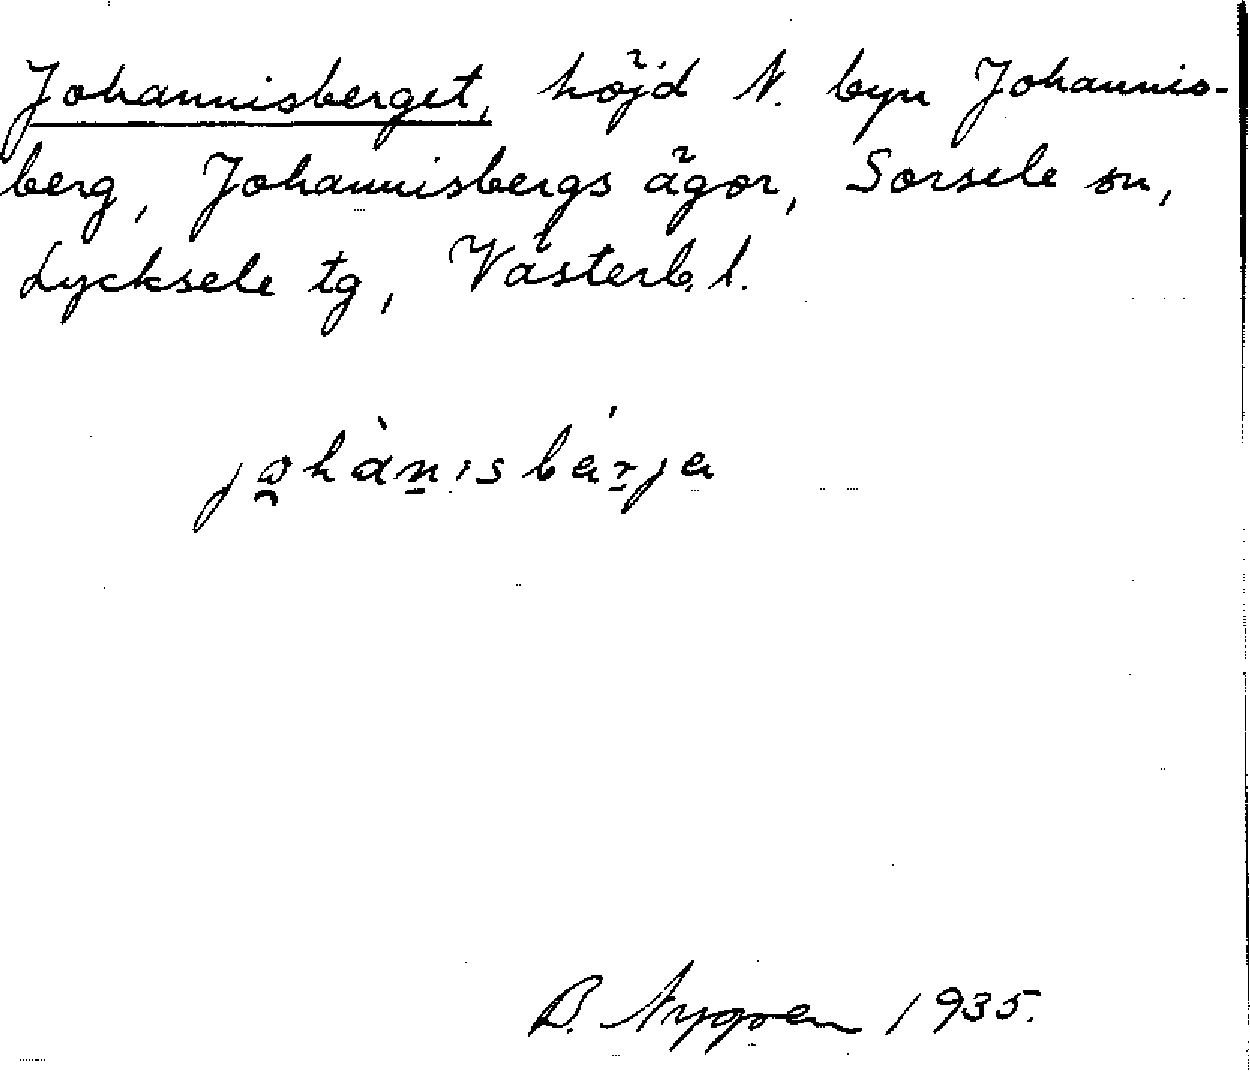 Johannisberget, höjd N. byn Johannis-
berg, Johannisbergs ägor, Sorsele sn,
Lycksele tg, Västerb. l.
johànisbárja
B. Nygren 1935.